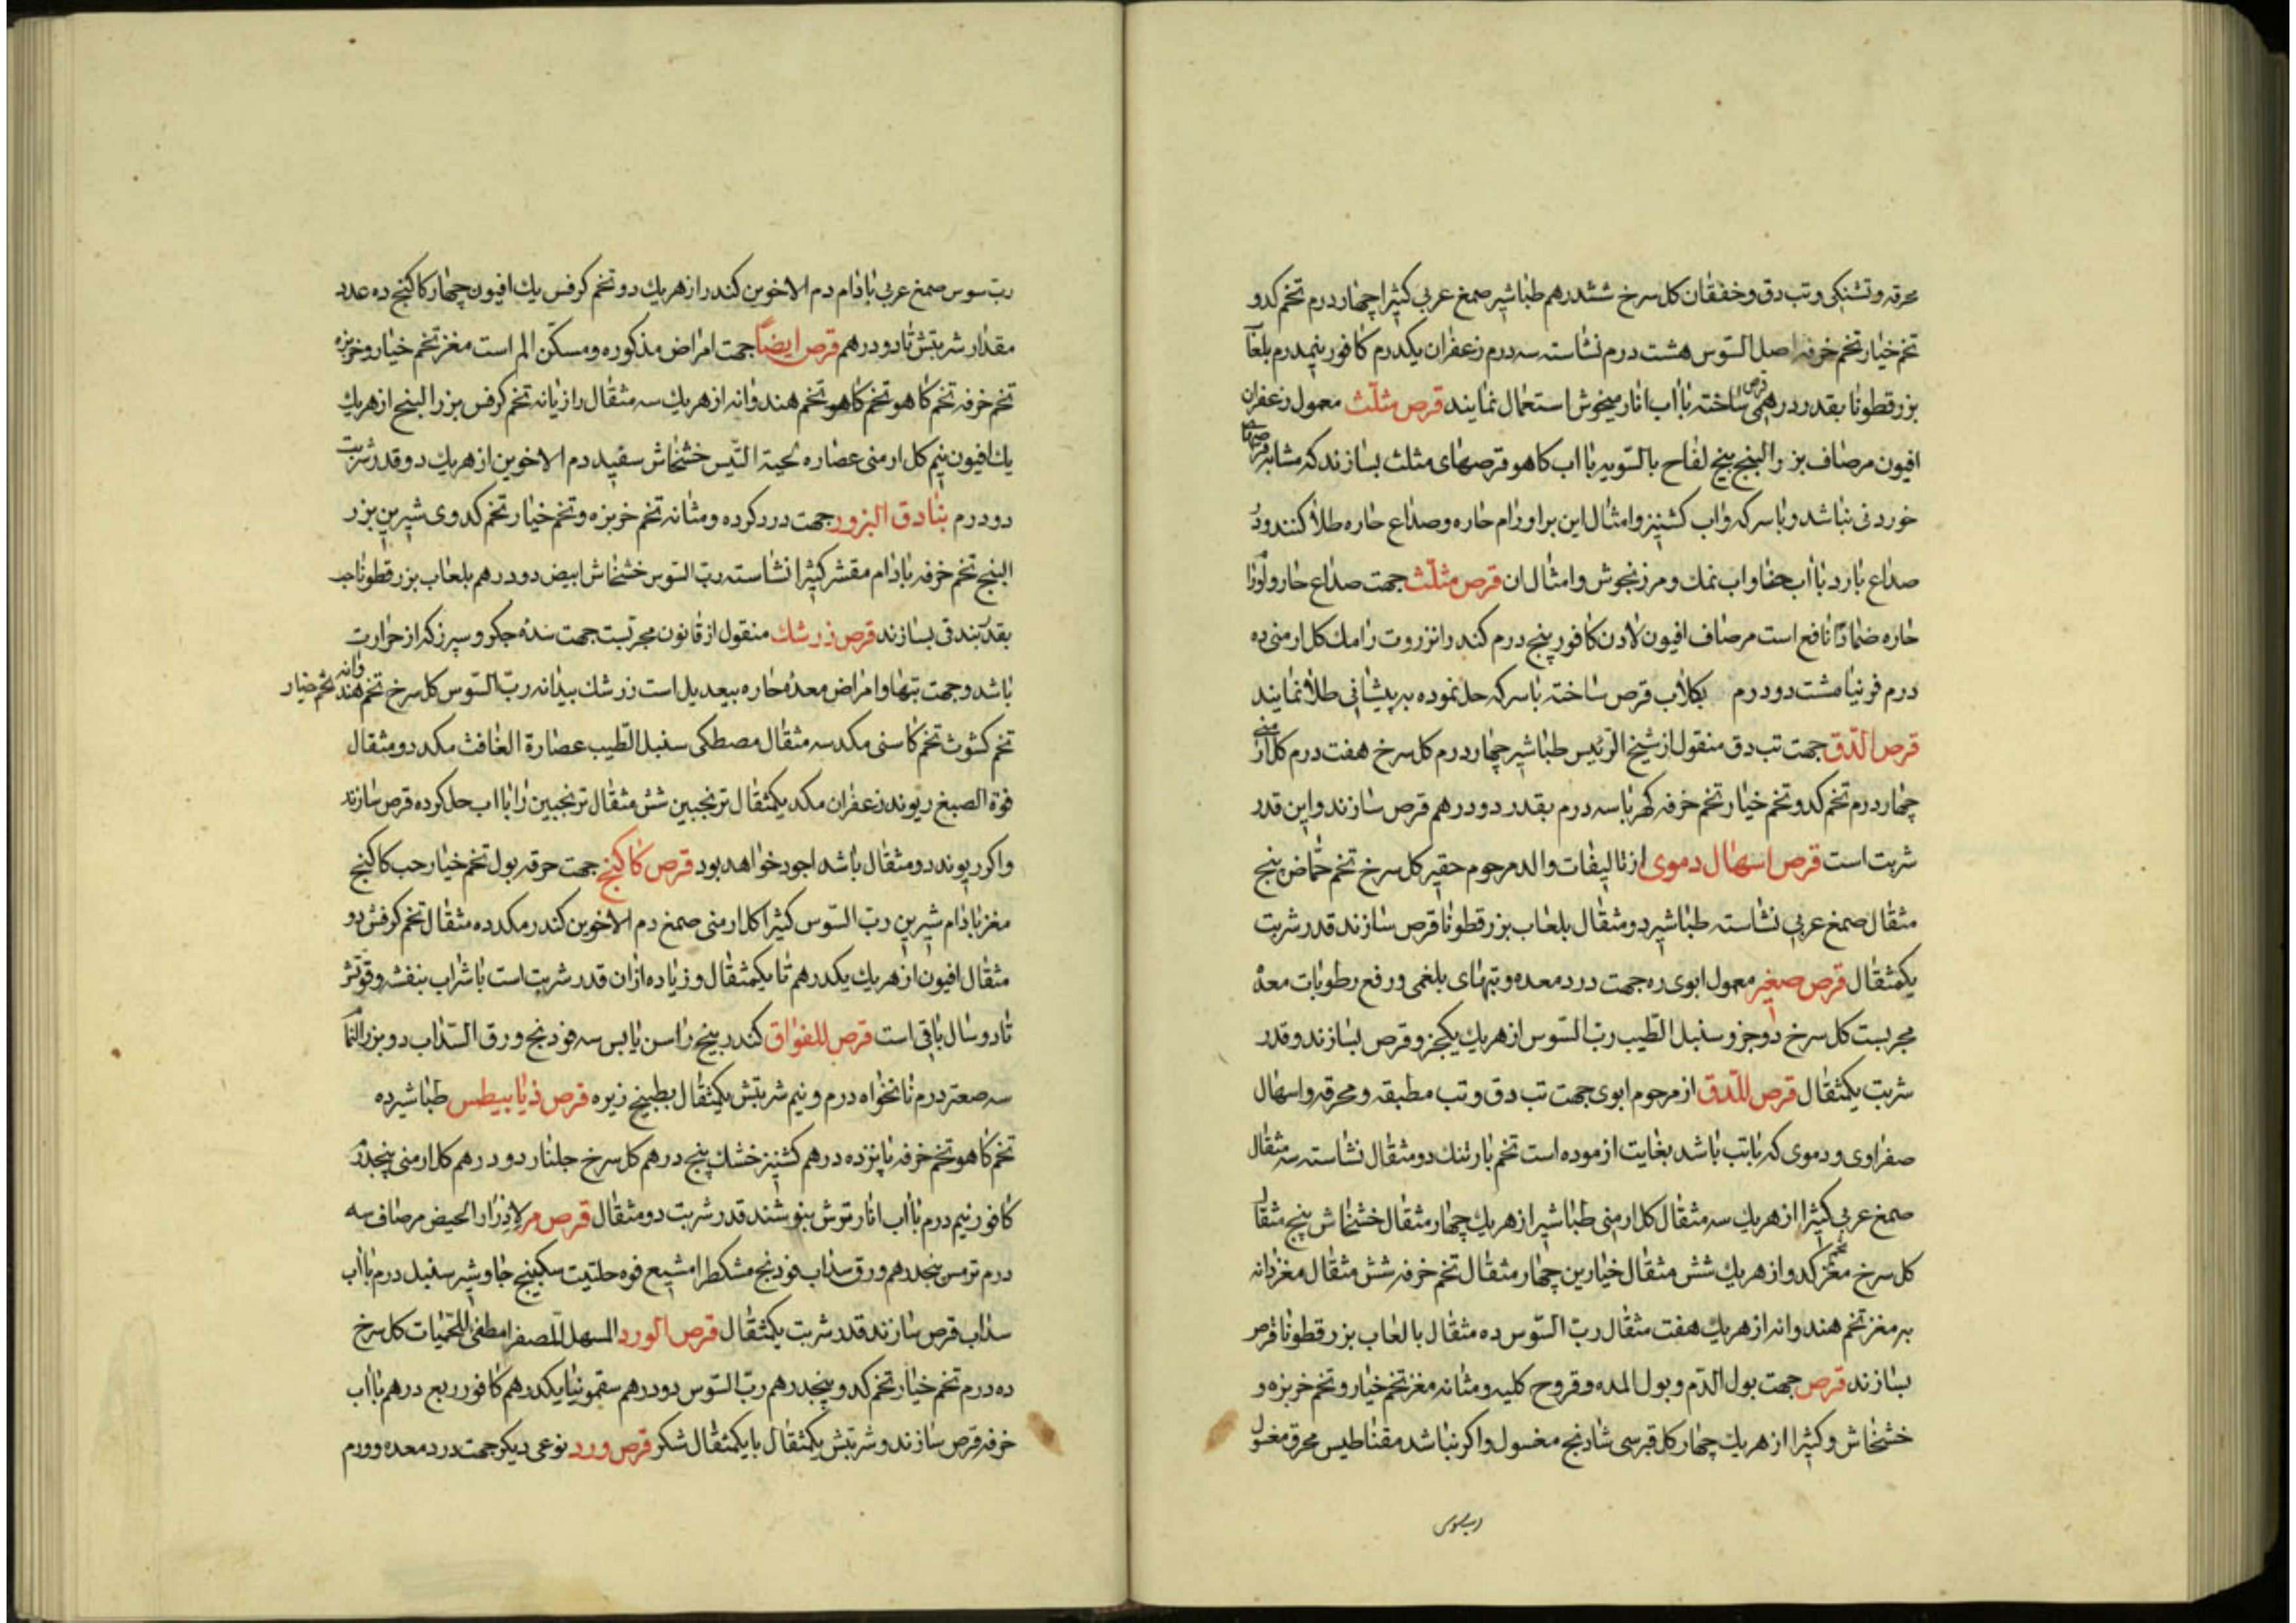 محرقه و تشنکی و تب دق و خفقان کل سرخ ششدرهم طباشیر صمغ عربی کثیرا چهار درم تخم کدو
تخم خیار تخم خرفه اصل السّوس هشت درم نشاسته سه درم زعفران یکدرم کافور نیمدرم بلعاب
بزرقطونا بقدر درهمی قرص ساخته با اب انار میخوش استعمال نمایند قرص مثلّث معمول زعفران
افیون مرصاف بزر البنج بیخ لفاح بالسّویه با اب کاهو قرصهای مثلث بسازند که مشابه قرصهای
خوردنی نباشد و با سرکه و اب کشنیز و امثال این بر اورام حاره و صداع حاره طلا کنند و در
صداع بارد با اب حنا و اب نمک و مرزنجوش و امثال ان قرص مثلّث جهت صداع حار و اورام
حاره ضمادًا نافع است مرصاف افیون لادن کافور پنج درم کندر انزروت رامک کل ارمنی ده
درم فرنیا مشت دو درم بکلاب قرص ساخته با سرکه حل نموده بر پیشانی طلا نمایند
قرص الدّق جهت تب دق منقول از شیخ الرّئیس طباشیر چهار درم کل سرخ هفت درم کل ارمنی
چهار درم تخم کدو تخم خیار تخم خرفه کهربا سه درم بقدر دو درهم قرص سازند و این قدر
شربت است قرص اسهال دموی از تالیفات والد مرحوم حقیر کل سرخ تخم حمّاض پنج
مثقال صمغ عربی نشاسته طباشیر دو مثقال بلعاب بزرقطونا قرص سازند قدر شربت
یکمثقال قرص صغیر معمول ابوی ره جهت درد معده و تبهای بلغمی و رفع رطوبات معده
مجربست کل سرخ دو جزو سنبل الطّیب ربّ السّوس از هریک یکجزو قرص بسازند و قدر
شربت یکمثقال قرص للدّق از مرحوم ابوی جهت تب دق و تب مطبقه و محرقه و اسهال
صفراوی و دموی که با تب باشد بغایت ازموده است تخم بارتنک دو مثقال نشاسته سه مثقال
صمغ عربی کثیرا از هریک سه مثقال کل ارمنی طباشیر از هریک چهار مثقال خشخاش پنج مثقال
کل سرخ مغز تخم کدو از هریک شش مثقال خیارین چهار مثقال تخم خرفه شش مثقال مغز دانه
به مغز تخم هندوانه از هریک هفت مثقال ربّ السّوس ده مثقال بالعاب بزرقطونا قرص
بسازند قرص جهت بول الدّم و بول المده و قروح کلیه و مثانه مغز تخم خیار و تخم خربزه و
خشخاش و کثیرا از هریک چهار کل قبرسی شادنج مغسول و اکر نباشد مقناطیس محرق مغسول
رب سوس
ربّ سوس صمغ عربی بادام دم الاخوین کندر از هریک دو تخم کرفس یک افیون چهار کاکنج ده عدد
مقدار شربتش تا دو درهم قرص ایضاً جهت امراض مذکوره و مسکّن الم است مغز تخم خیار و خربزه
تخم خرفه تخم کاهو تخم کاهو تخم هندوانه از هریک سه مثقال رازیانه تخم کرفس بزر البنج از هریک
یک افیون نیم کل ارمنی عصاره لحیة التّیس خشخاش سفید دم الاخوین از هریک دو قدر شربت
دو درم بنادق البزور جهت درد کرده و مثانه تخم خربزه و تخم خیار تخم کدوی شیرین بزر
البنج تخم خرفه بادام مقشر کثیرا نشاسته ربّ السّوس خشخاش ابیض دو درهم بلعاب بزرقطونا حب
بقدر بندقی بسازند قرص زرشک منقول از قانون مجربست جهت سده جکر و سپرز که از حرارت
باشد و جهت تبها و امراض معده حاره بیعدیل است زرشک بیدانه ربّ السّوس کل سرخ تخم هندوانه تخم خیار
تخم کشوث تخم کاسنی مکد سه مثقال مصطکی سنبل الطّیب عصارة الغافث مکد دو مثقال
فوّة الصبغ ریوند زعفران مکد یکمثقال ترنجبین شش مثقال ترنجبین را با اب حل کرده قرص سازند
و اکر ریوند دو مثقال باشد اجود خواهد بود قرص کاکنج جهت حرقه بول تخم خیار حب کاکنج
مغز بادام شیرین ربّ السّوس کثیرا کل ارمنی صمغ دم الاخوین کندر مکد ده مثقال تخم کرفس دو
مثقال افیون از هریک یکدرهم تا یکمثقال و زیاده از ان قدر شربت است با شراب بنفشه و قوتش
تا دو سال باقی است قرص للفواق کندر بیخ راسن یابس سه فودنج ورق السّداب دو بزر
سه صعتر درم نانخواه درم و نیم شربتش یکمثقال بطبیخ زیره قرص ذیابیطس طباشیر ده
تخم کاهو تخم خرفه پانزده درهم کشنیز خشک پنج درهم کل سرخ جلنار دو درهم کل ارمنی پنجدرم
کافور نیم درم با اب انار ترش بنوشند قدر شربت دو مثقال قرص مر لادرار الحیض مرصاف سه
درم ترمس پنجدرهم ورق سداب فودنج مشکطرامشیع فوه حلتیت سکبینج جاوشیر سنبل درم با اب
سداب قرص سازند قدر شربت یکمثقال قرص الورد المسهل للصفرا مطفی للحمّیات کل سرخ
ده درم تخم خیار تخم کدو پنجدرهم ربّ السّوس دو درهم سقمونیا یکدرهم کافور ربع درهم با اب
خرفه قرص سازند و شربتش یکمثقال با یکمثقال شکر قرص ورد نوعی دیکر جهت درد معده و ورم